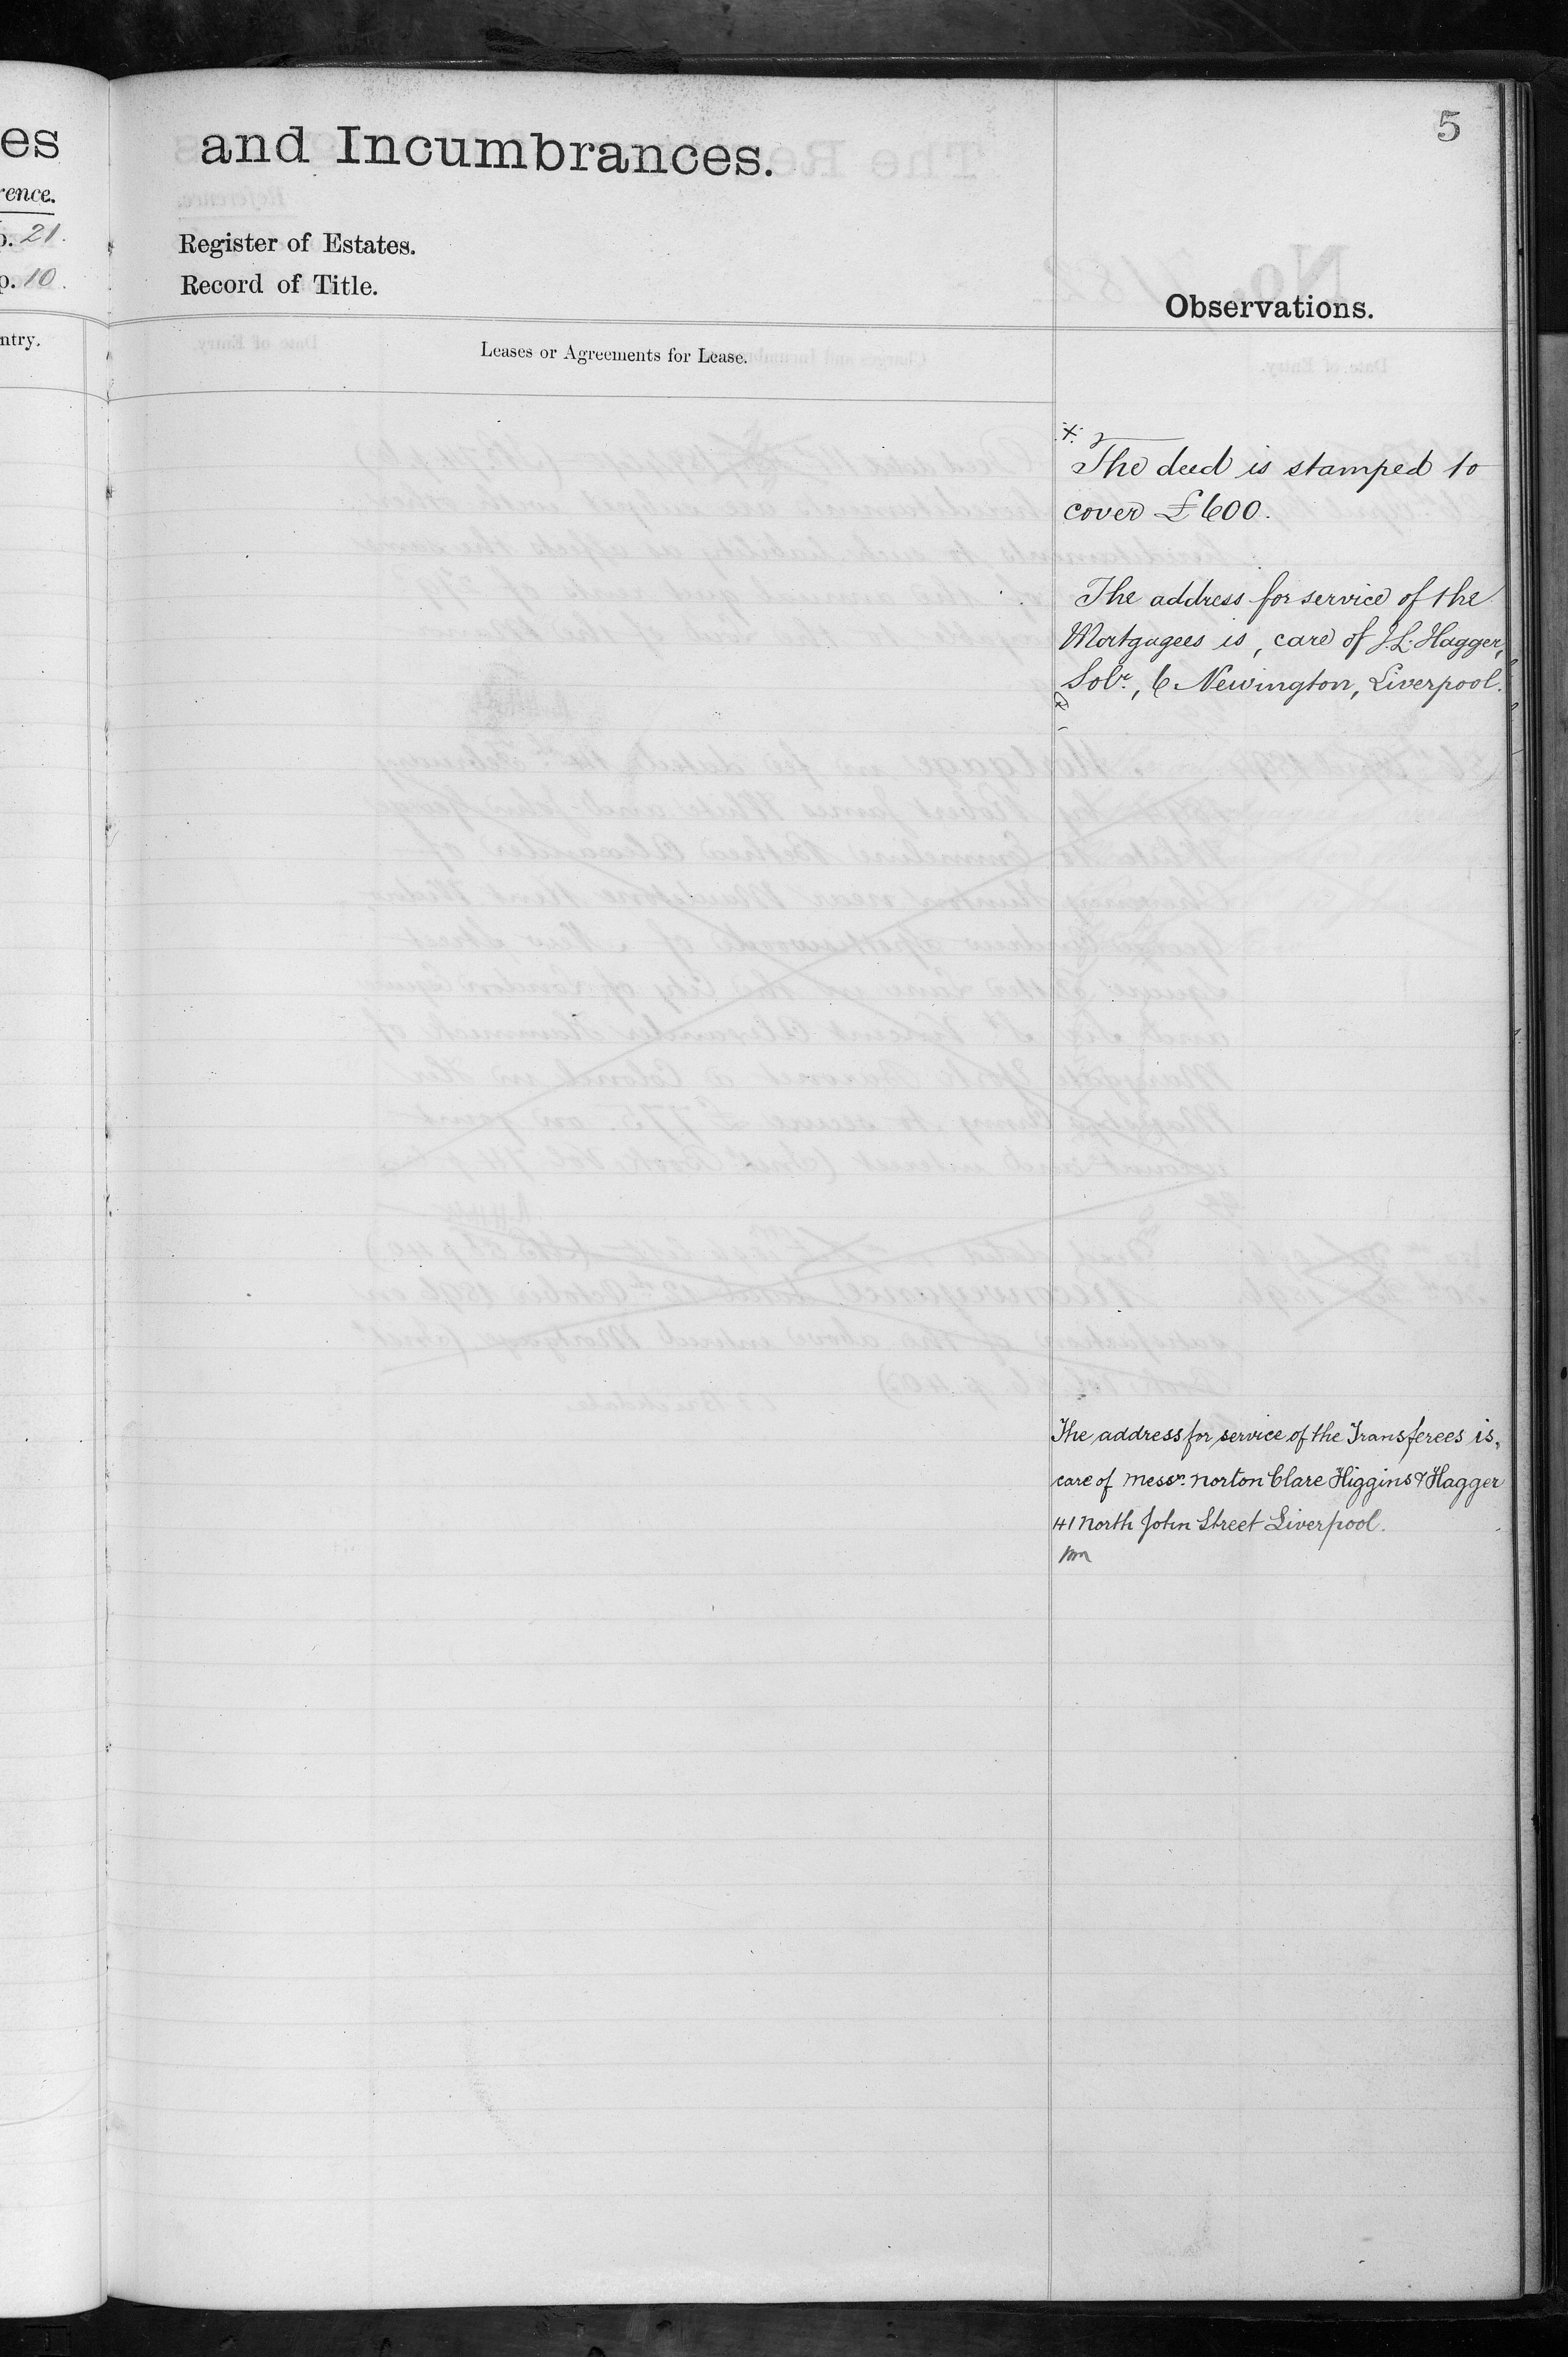 es
rence.
p. 21.
p. 10.
ntry.
5
and Incumbrances.
Register of Estates.
Record of Title.
Observations.
Leases or Agreements for Lease.
The deed is stamped to
cover £600.
The address for service of the
Mortgagees is, care of J. L. Hagger,
Solr., 6 Newington, Liverpool.
The address for service of the Transferees is,
care of Messrs. Norton Clare Higgins & Hagger
41 North John Street Liverpool.